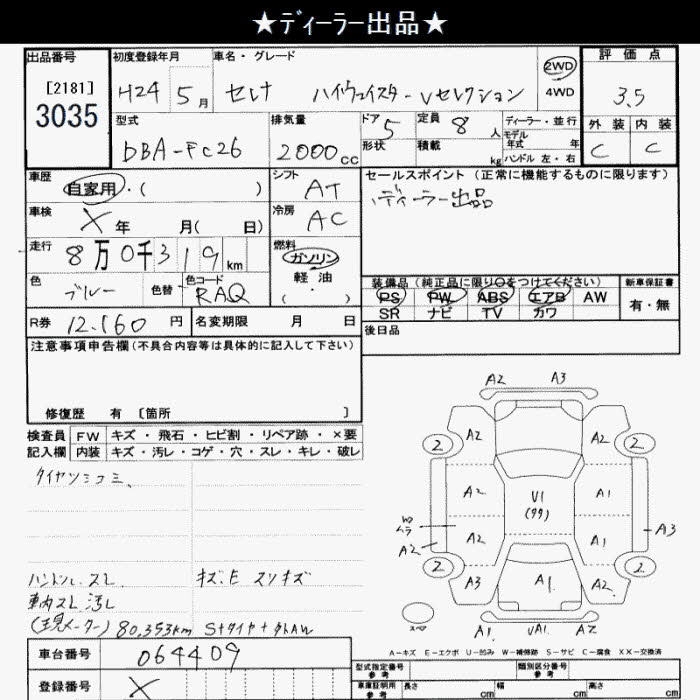 ★ディーラー出品★
出品番号
[2181]
3035
初度登録年月
H24 5月
車名・グレード
セレナ ハイウェイスターVセレクション
2WD
4WD
評価点
3.5
外装 内装
C C
型式
DBA-FC26
排気量
2000cc
ドア 5
形状
定員 8 人
積載 kg
ディーラー・並行
モデル年式 年
ハンドル 左・右
車歴
自家用・( )
シフト
AT
セールスポイント(正常に機能するものに限ります)
ディーラー出品
車検
X 年 月( 日)
冷房
AC
走行
8万0千319km
燃料
ガソリン
軽油
( ・ )
色
ブルー
色替
色コード
RAQ
装備品(純正品に限り○をつけてください)
PS PW ABS エアB AW
SR ナビ TV カワ
新車保証書
有・無
R券 12.160 円
名変期限 月 日
後日品
注意事項申告欄(不具合内容等は具体的に記入して下さい)
修復歴 有 〔箇所 〕
検査員記入欄
FW キズ・飛石・ヒビ割・リペア跡・×要
内装 キズ・汚レ・コゲ・穴・スレ・キレ・破レ
タイヤツミコミ、
ハンドル、スレ キズ、E スリキズ
車内スレ 汚レ
(現メーター) 80,353km S+タイヤ+外AW
A2 A3
2 A2 A2 2
A2 U1 A1
(99)
W2
ムラ
A2 A2 A1 A3
2 A3 A1 A2 2
スペア
A1 UA1 A2
A-キズ E-エクボ U-凹み W-補修跡 S-サビ C-腐食 XX-交換済
車台番号 064409
登録番号 X
型式指定番号
参考
類別区分番号
参考
車庫証明用
参考
長さ cm 幅 cm 高さ cm